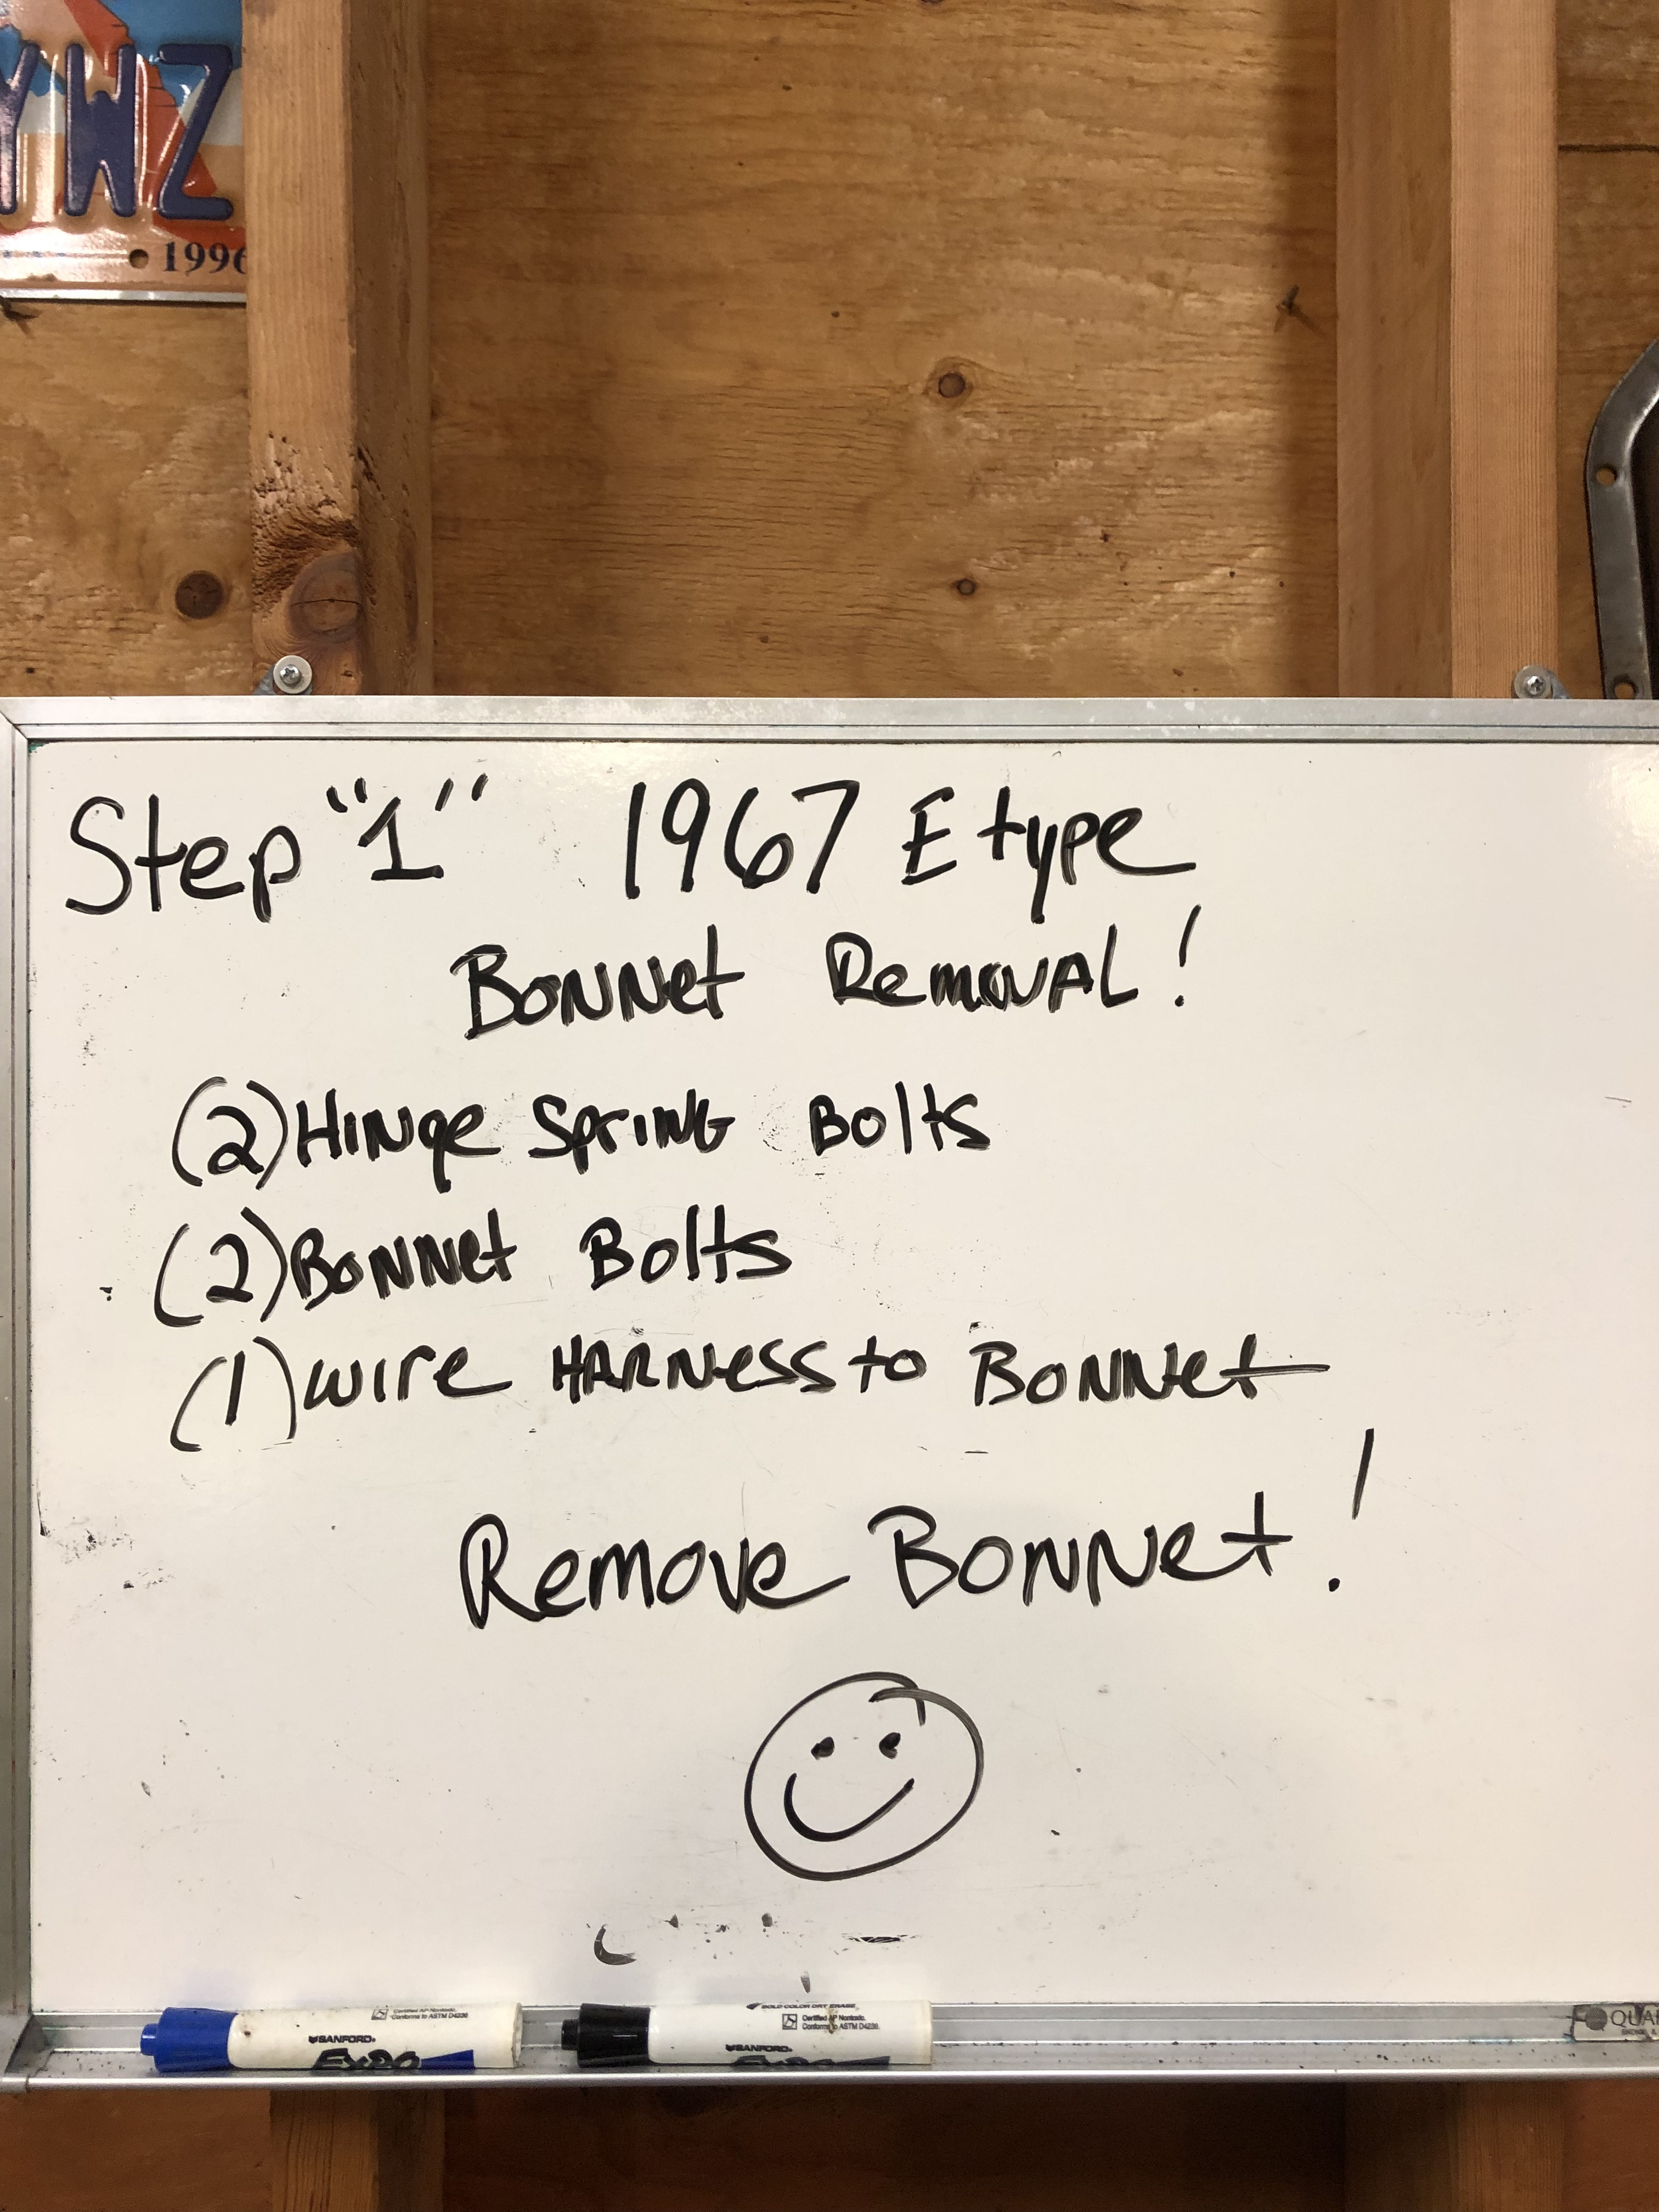 YWZ
1996
Step "1" 1967 E type
Bonnet Removal!
(2) Hinge Spring Bolts
(2) Bonnet Bolts
(1) wire HARNess to Bonnet
Remove Bonnet!
Certified AP Nontoxic.
Conforms to ASTM D4236
SANFORD
EXPO
BOLD COLOR DRY ERASE
Certified AP Nontoxic.
Conforms to ASTM D4236.
SANFORD
EXPO